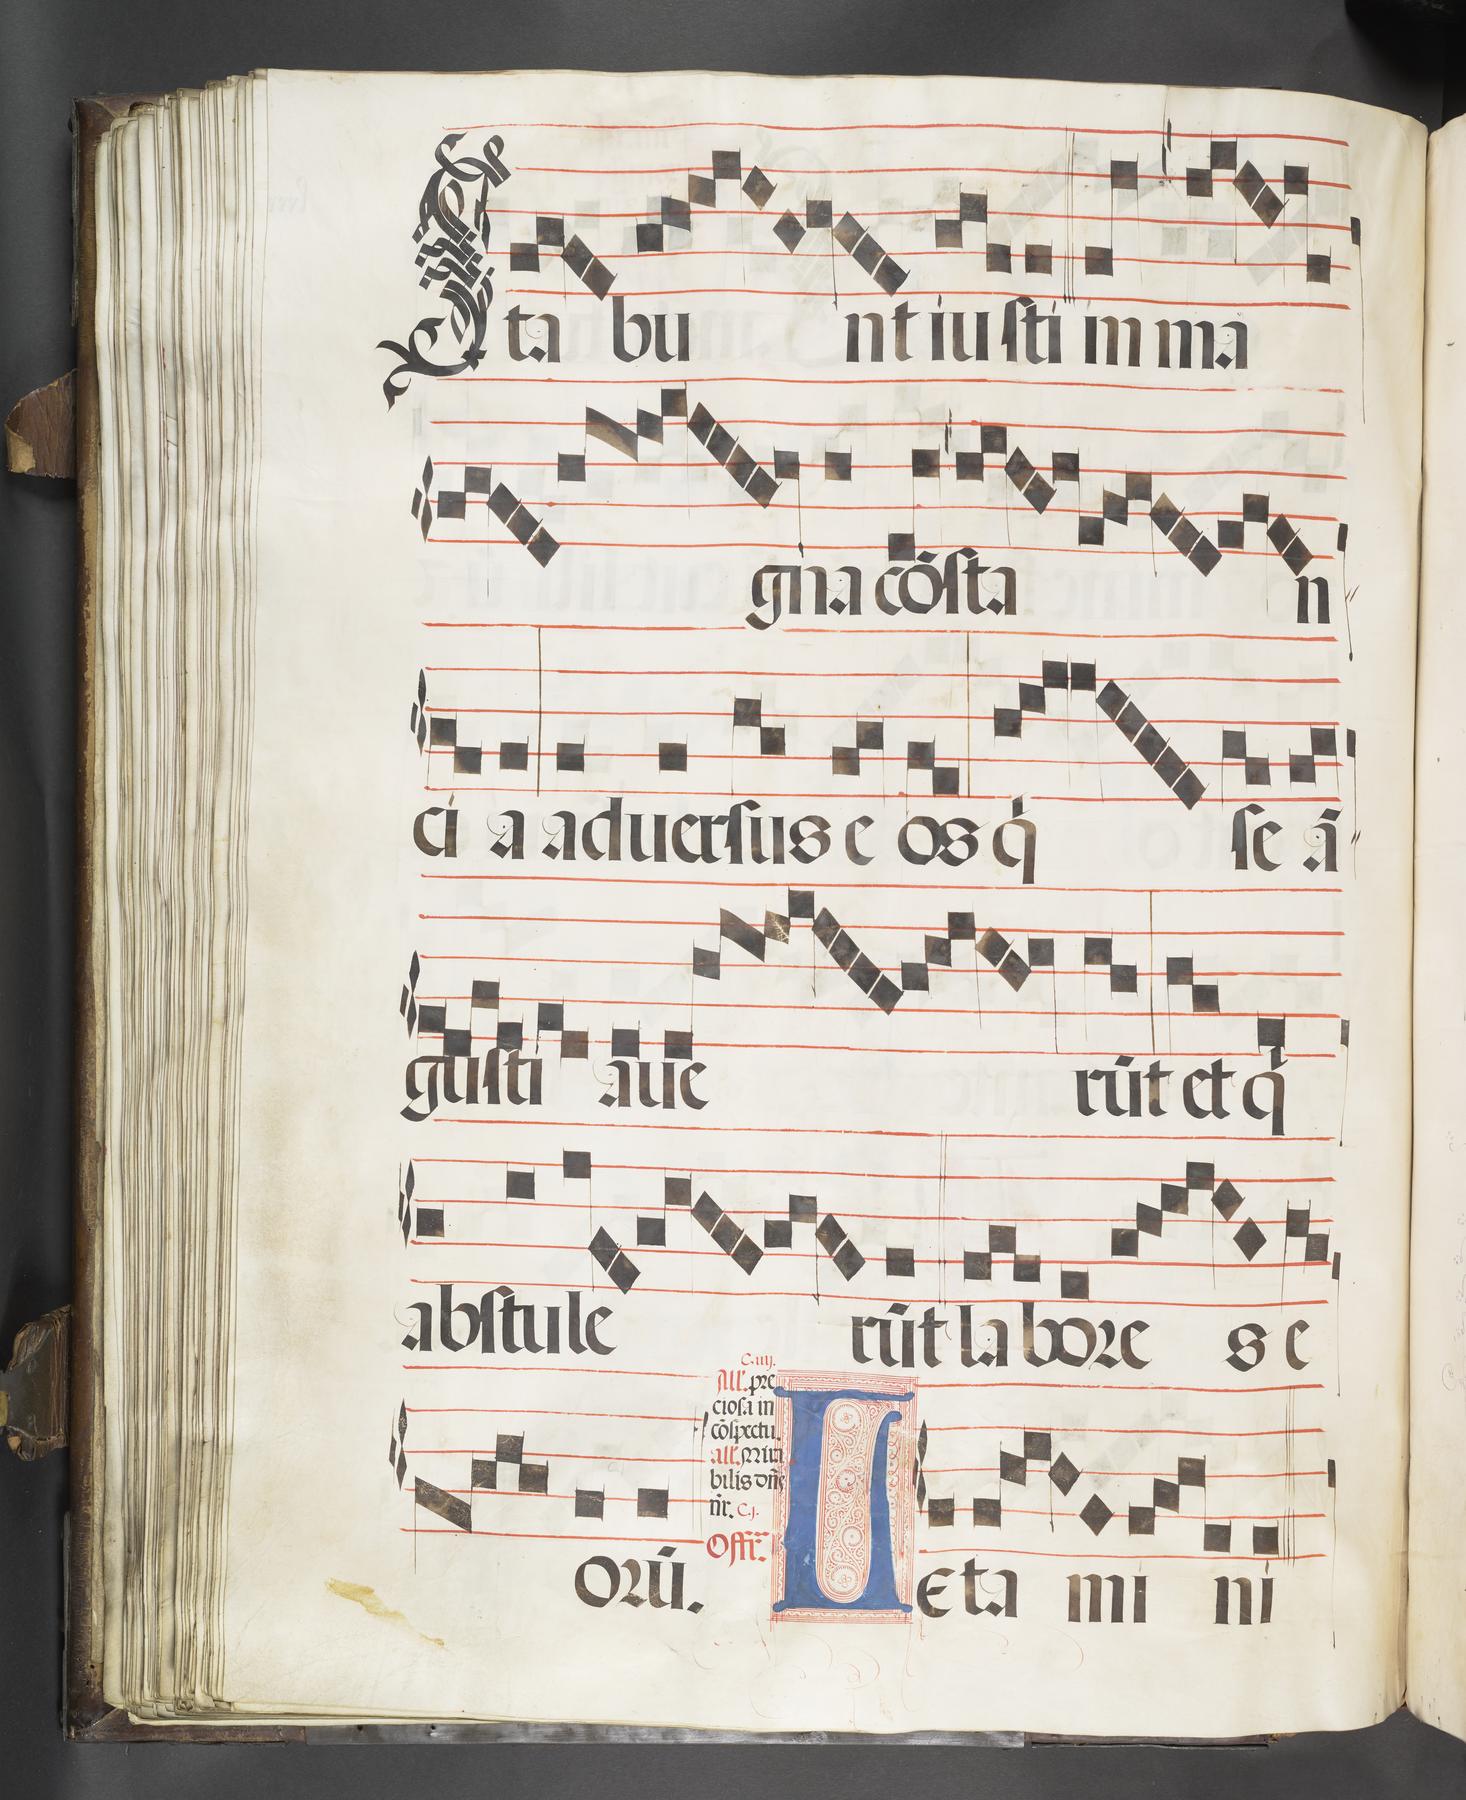 Sta bu nt iu sti in ma
gna cõsta n
ci a aduersus e os q̇ se ã
gusti aue rũt et q̇
abstule rũt la bore s e
C.iiij.
All'. pre
ciosa in
cõspectu.
all'. Mira
bilis dñs
nr̃. C.j.
Offr̃.
orũ. L eta mi ni